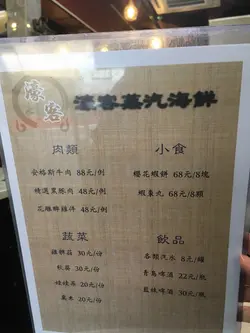 濠客
濠客蒸汽海鮮
肉類
安格斯牛肉 88元/例
精選黑豚肉 48元/例
花雕醉雞件 48元/例
小食
櫻花蝦餅 68元/8塊
蝦棗丸 68元/8顆
蔬菜
30元/份
20元/份
娃娃菜 20元/份
20元/份
飲品
各類汽水 8元/罐
青島啤酒 22元/瓶
藍妹啤酒 30元/瓶